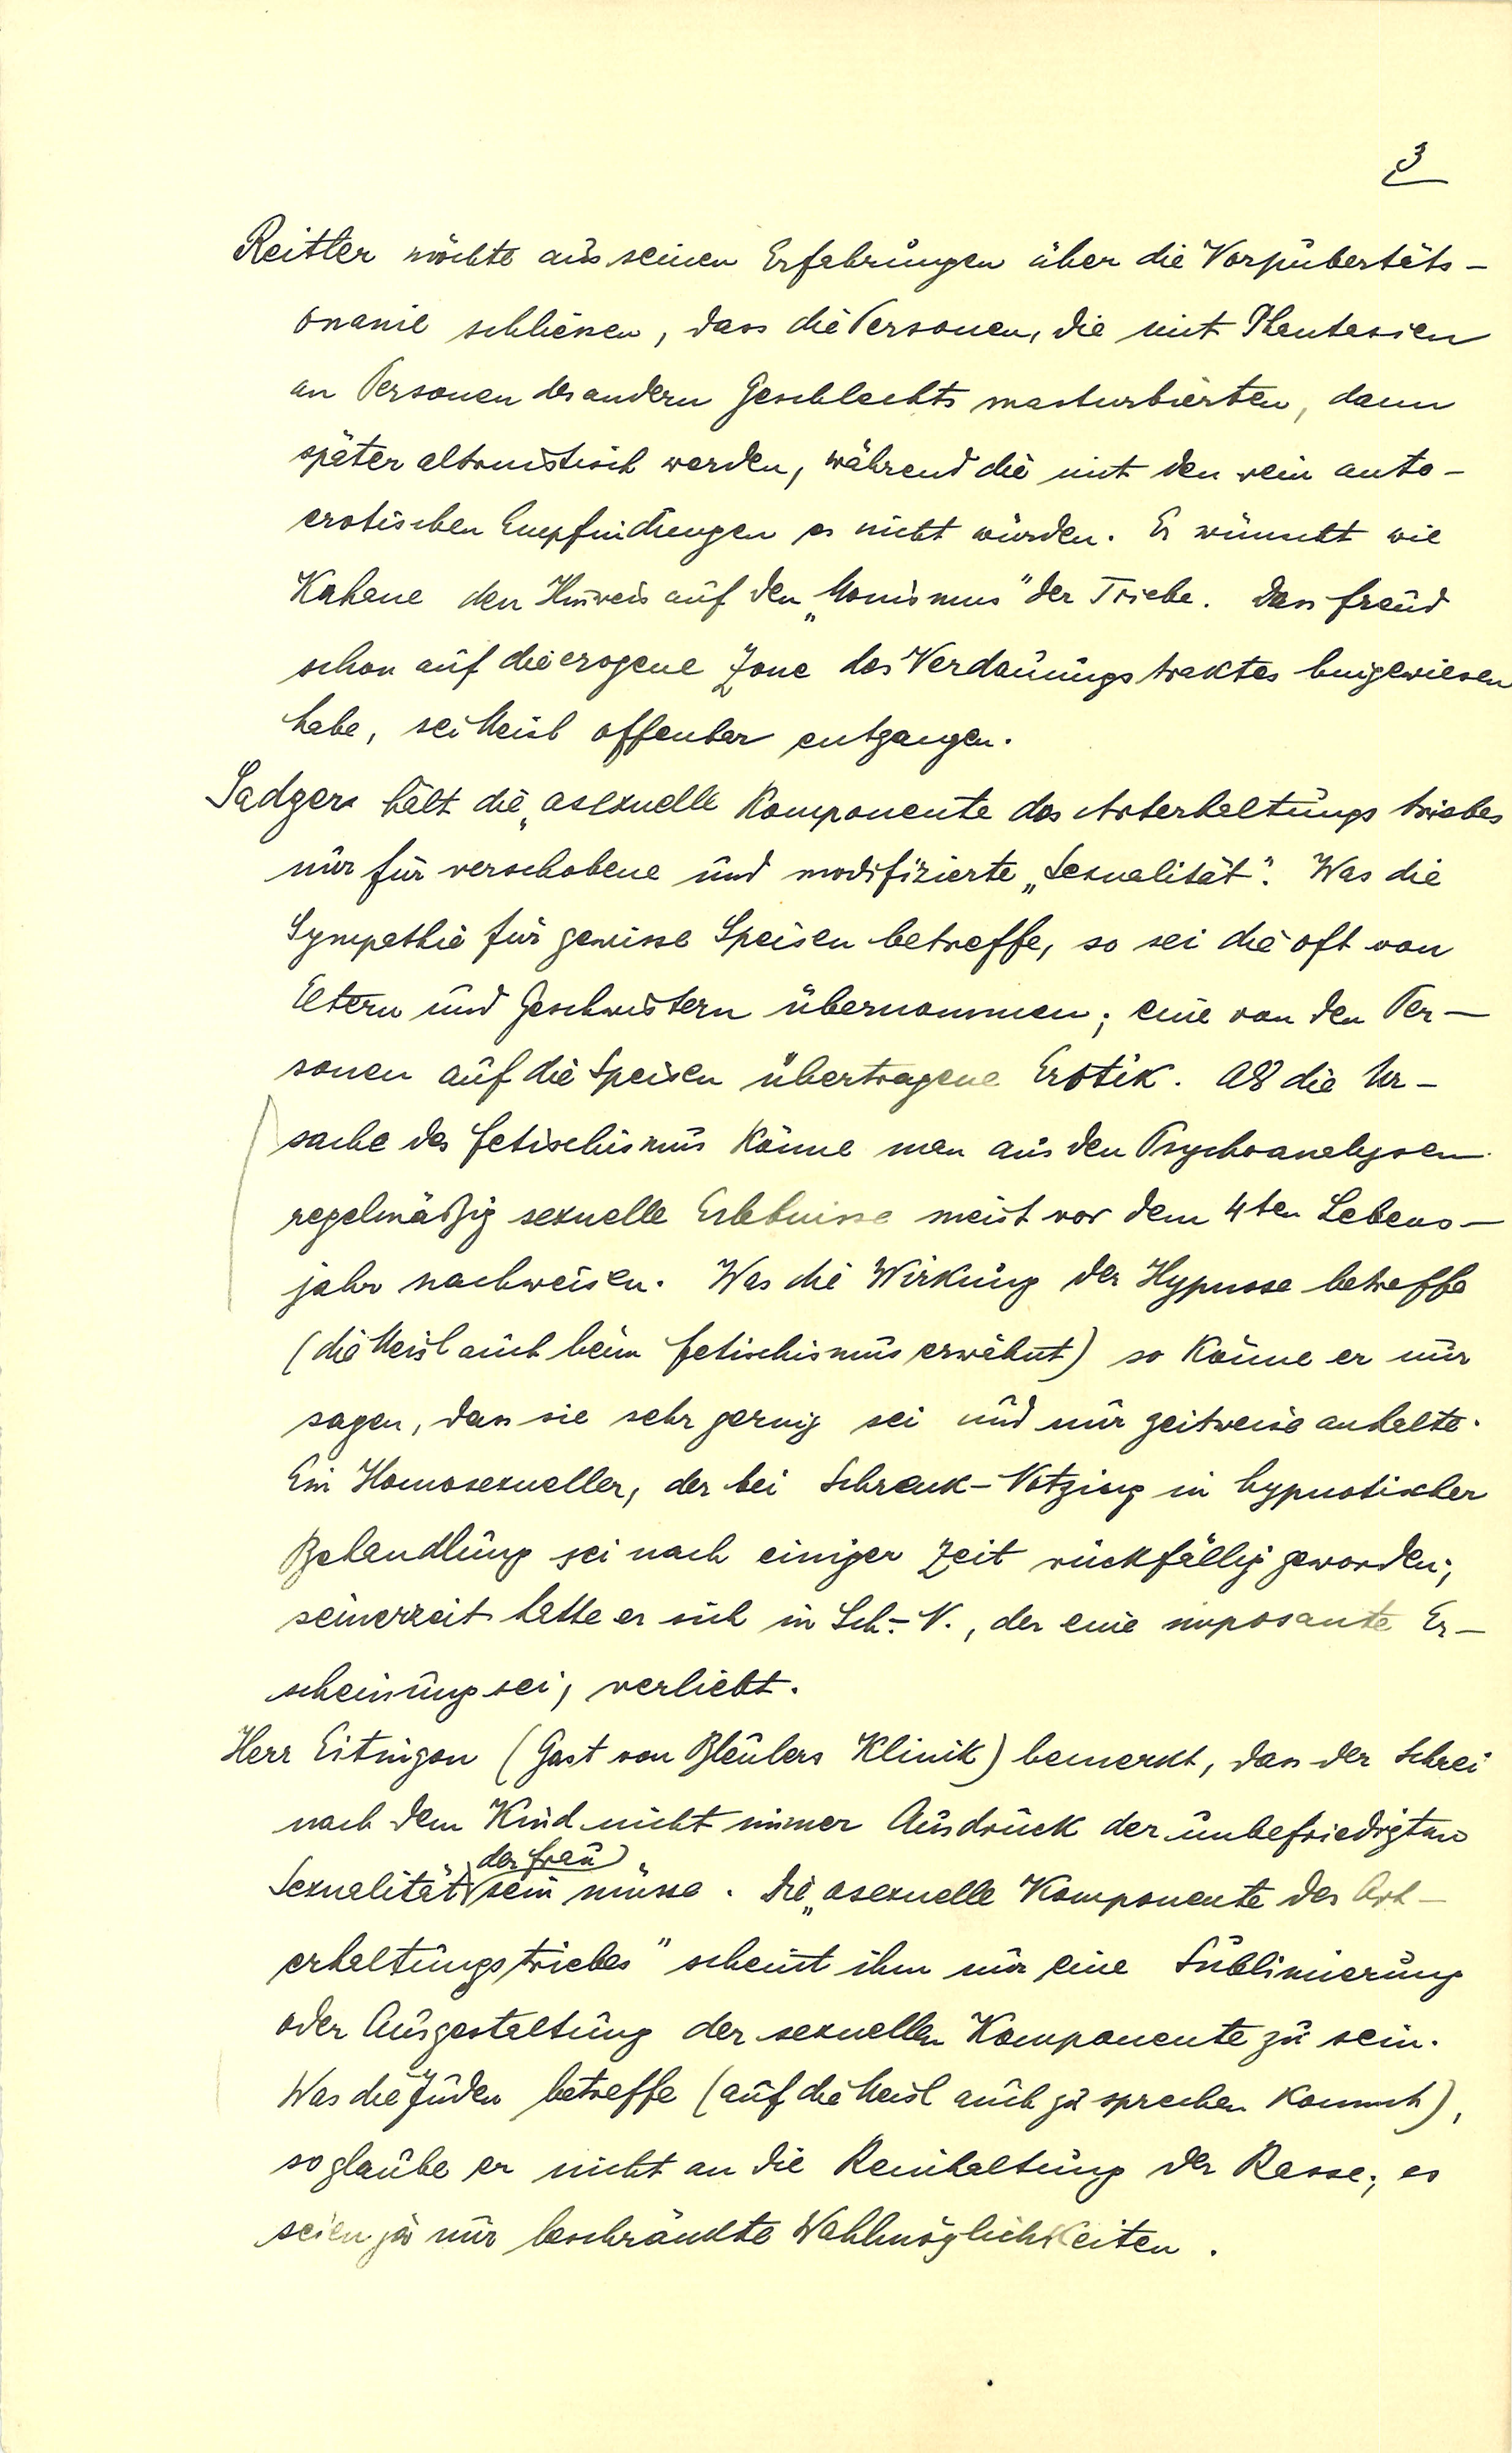 3
Reitler möchte aus seinen Erfahrungen über die Vorpubertäts-
onanie schliessen, dass die Personen, die mit Phantasien
an Personen des andern Geschlechts masturbierten, dann
später altruistisch werden, während die mit den rein auto-
erotischen Empfindungen es nicht würden. Er wünscht wie
Kahane den Hinweis auf den „Monismus" der Triebe. Dass Freud
schon auf die erogene Zone des Verdauungstraktes hingewiesen
habe, sei Meisl offenbar entgangen.
Sadger hält die „asexuelle Komponente des Arterhaltungstriebes
nur für verschobene und modifizierte „Sexualität". Was die
Sympathie für gewisse Speisen betreffe, so sei die oft von
Eltern und Geschwistern übernommen; eine von den Per-
sonen auf die Speisen übertragene Erotik. Als die Ur-
sache des Fetischismus könne man aus den Psychoanalysen
regelmäßig sexuelle Erlebnisse meist vor dem 4ten Lebens-
jahr nachweisen. Was die Wirkung der Hypnose betreffe
(die Meisl auch beim Fetischismus erwähnt) so könne er nur
sagen, dass sie sehr gering sei und nur zeitweise anhalte.
Ein Homosexueller, der bei Schrenk-Notzing in hypnotischer
Behandlung sei nach einiger Zeit rückfällig geworden;
seinerzeit hatte er sich in Sch.-N., der eine imposante Er-
scheinung sei, verliebt.
Herr Eitingon (Gast von Bleulers Klinik) bemerkt, dass der Schrei
nach dem Kind nicht immer Ausdruck der unbefriedigten
der Frau
Sexualität sein müsse. Die „asexuelle Komponente des Art-
erhaltungstriebes" scheint ihm nur eine Sublimierung
oder Ausgestaltung der sexuellen Komponente zu sein.
Was die Juden betreffe (auf die Meisl auch zu sprechen kommt),
so glaube er nicht an die Reinhaltung der Rasse; es
seien ja nur beschränkte Wahlmöglichkeiten.